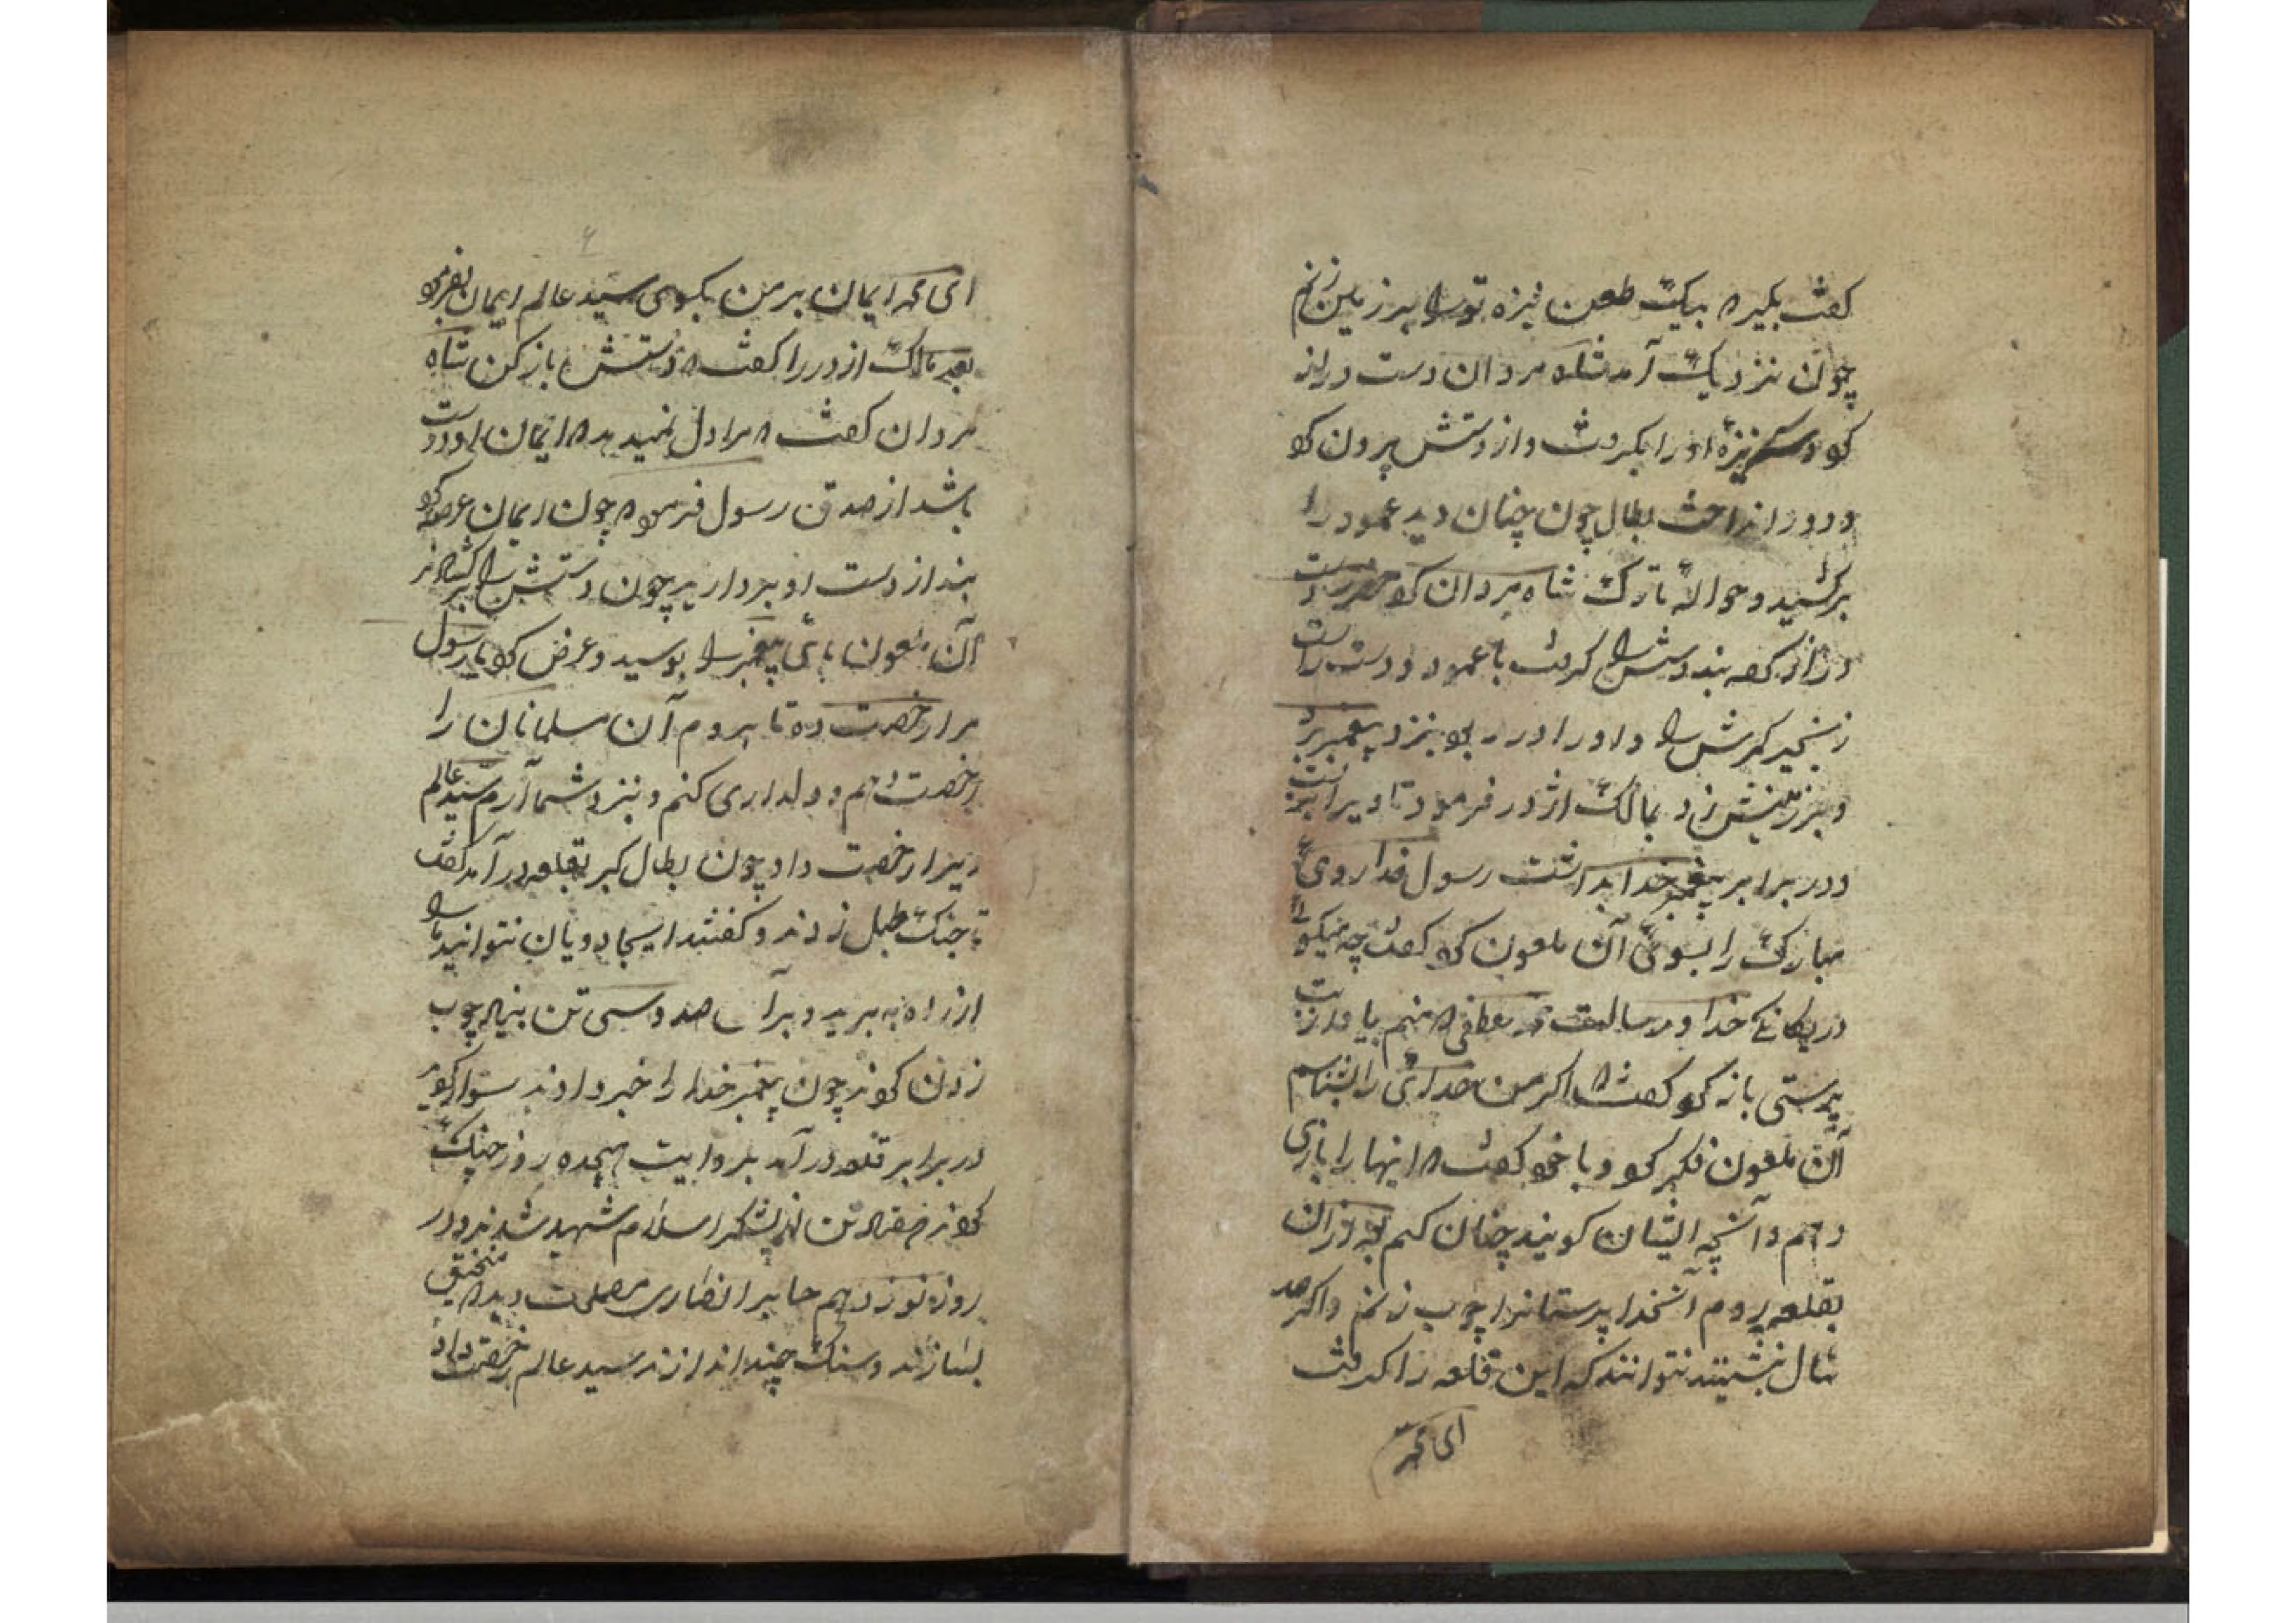 کفت بکیر که بیکت طعن نیزه تو را بر زمین زنم
چون نزدیکت آمد شاه مردان دست دراز
کرد و سر نیزه او را بکرفت و از دستش بیرون کرد
و دور انداخت بطال چون چنان دید عمود را
برکشید و حوالهٔ تارک شاه مردان کرد حضرت دست
دراز کرده بند دستش را کرفت با عمود و دست راست
زنجیر کمرش را و او را در ربود بنزد پیغمبر برد
و بر زمینش زد بمالک اژدر فرمود تا ویرا بست
و در برابر پیغمبر خدا بداشت رسول خدا روی
مبارک را بسوی آن ملعون کرد کفت چه میکوئی
در یکانکی خدا و رسالت محمد مصطفی که منم یا از بت
پرستی باز کرد کفت که اکر من خدای را بشناسم
آن ملعون فکر کرد و با خود کفت که اینها را بازی
دهم و آنچه ایشان کویند چنان کنم بعد از آن
بقلعه روم آن خدا پرستانرا چوب زنم و اکر صد
سال بنشینند نتوانند که این قلعه را کرفت
ای محمد
ای محمد ایمان بر من بکوی سید عالم ایمان بفرمود
بعد مالک اژدر را کفت که دستش باز کن شاه
مردان کفت که مرا دل نمیدهد که ایمان او درست
باشد از صدق رسول فرمود که چون ایمان عرضه کرد
بند از دست او بردارید چون دستش را بر کشادند
آن ملعون پای پیغمبر را بوسید و عرض کرد یا رسول
مرا رخصت ده تا بروم آن مسلمانان را
رخصت دهم و دلداری کنم و نزد شما آرم سید عالم
ویرا رخصت داد چون بطال کبر بقلعه در آمد کفت
تا جنک طبل زدند و کفتند ای جادویان نتوانید ما را
از راه به برید و بر آن صد و سی تن بنیاد چوب
زدن کردند چون پیغمبر خدا را خبر دادند سوار کردید
در برابر قلعه در آمد بروایت هجده روز جنک
کردند هفتاد تن از لشکر اسلام شهید شدند و در
روز نوزدهم جابر انصاری مصلحت دید که منجنیق
بسازند و سنک چند اندازند سید عالم رخصت داد